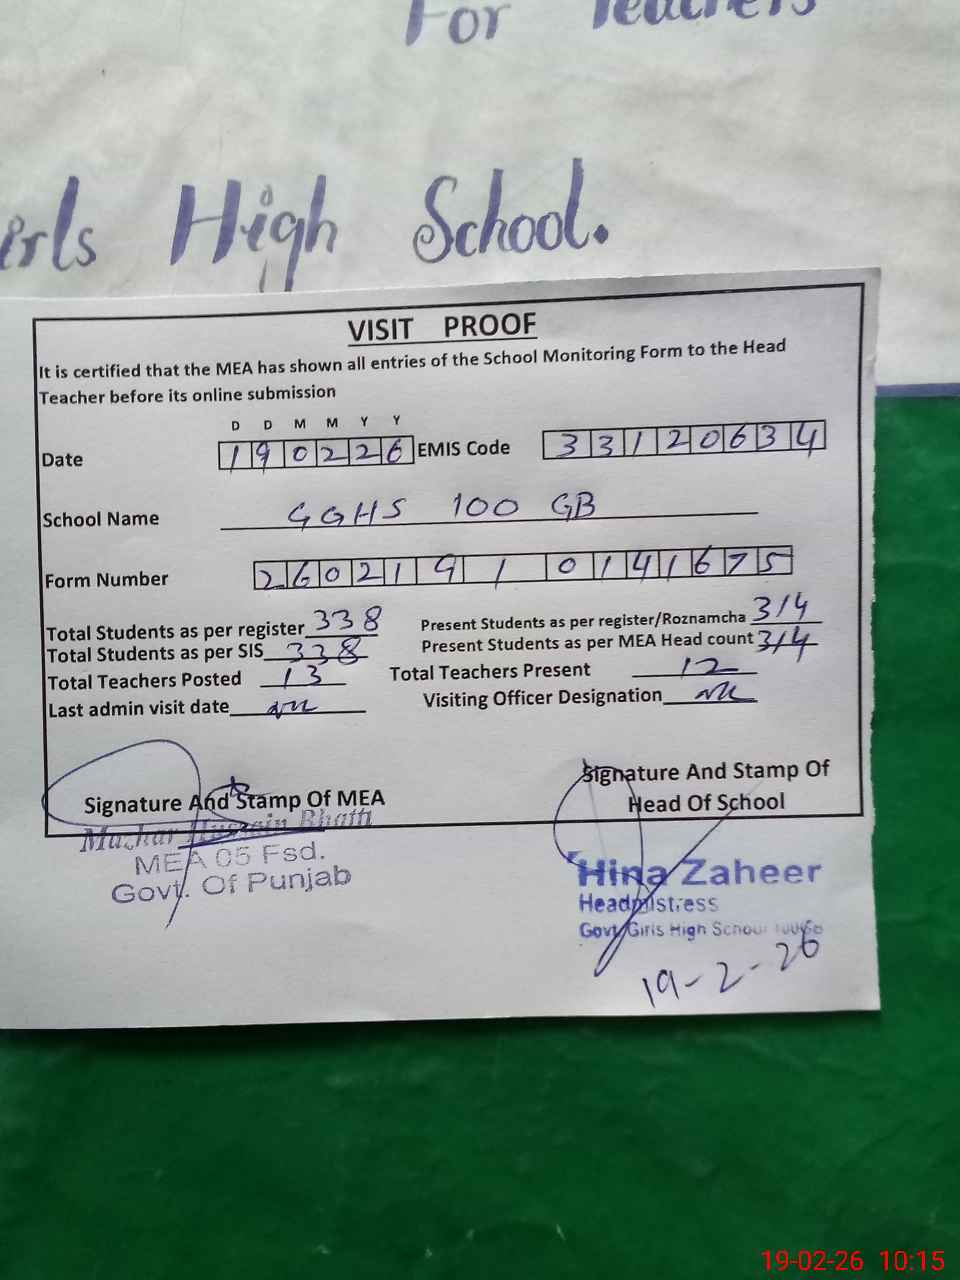 For Teachers
irls High School.
VISIT PROOF
It is certified that the MEA has shown all entries of the School Monitoring Form to the Head
Teacher before its online submission
D D M M Y Y
Date 190226 EMIS Code 33120634
School Name GGHS 100 GB
Form Number 26021910141675
Total Students as per register 338 Present Students as per register/Roznamcha 314
Total Students as per SIS 338 Present Students as per MEA Head count 314
Total Teachers Posted 13 Total Teachers Present 12
Last admin visit date Visiting Officer Designation
Signature And Stamp Of MEA
Signature And Stamp Of
Head Of School
Mazhar Hussain Bhatti
MEA 05 Fsd.
Govt. Of Punjab
Hina Zaheer
Headmistress
Govt Girls High School 100GB
19-2-26
19-02-26 10:15